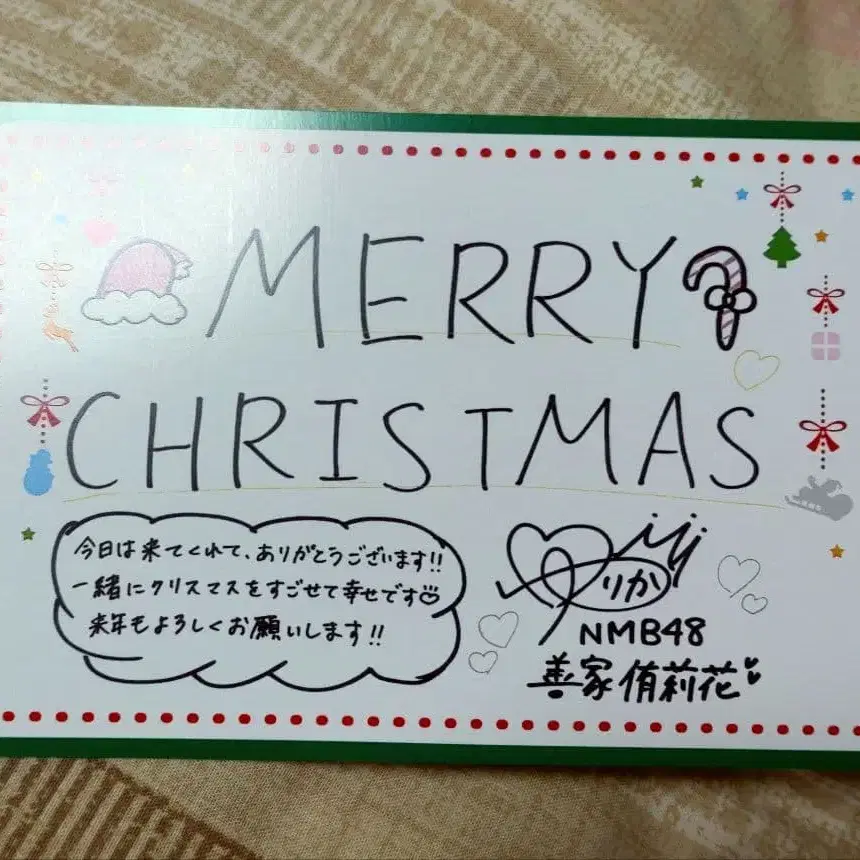 MERRY
CHRISTMAS
今日は来てくれて、ありがとうございます!!
一緒にクリスマスをすごせて幸せです
来年もよろしくお願いします!!
りか
NMB48
善家侑莉花